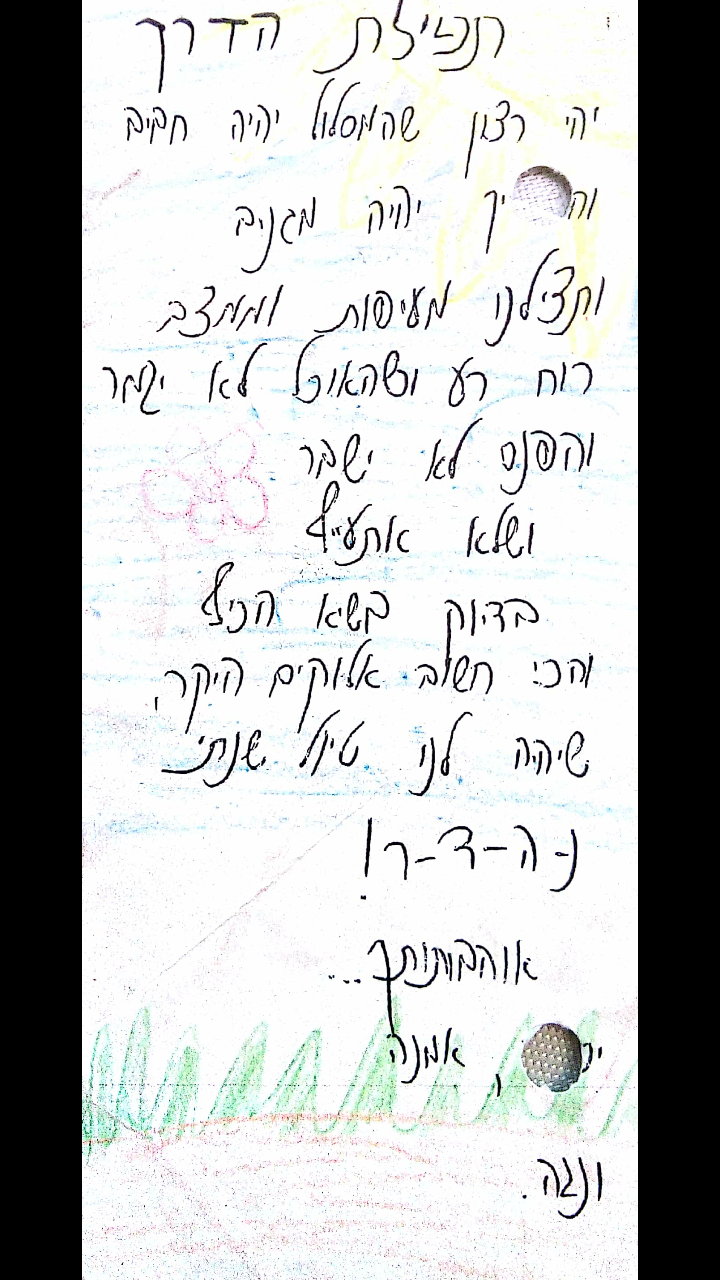 תפילת הדרך
יהי רצון שהמסלול יהיה חביב
יהיה מגניב
ותצילנו מעיפות וממצב
רוח רע ושהאוכל לא יגמר
והפנס לא ישבר
ושלא אתעייף
בדיוק בשיא הכיף
והכי חשוב אלוקים היקר,
שיהיה לנו טיול שנתי
נ-ה-ד-ר!
אמנה
ונגה.